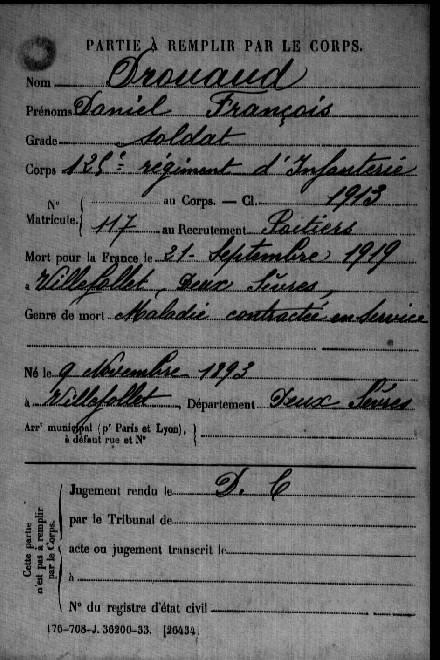 PARTIE À REMPLIR PAR LE CORPS.
Nom Drouaud
Prénoms Daniel François
Grade soldat
Corps 125e régiment d'Infanterie
N° Matricule. { au Corps. — Cl. 1913
117 au Recrutement Poitiers
Mort pour la France le 21 Septembre 1919
à Villefollet, Deux Sèvres,
Genre de mort Maladie contractée en service
Né le 9 Novembre 1893
à Villefollet, Département Deux Sèvres
Arrt municipal (pr Paris et Lyon), à défaut rue et N° }
Cette partie n'est pas à remplir par le Corps.
Jugement rendu le D. C
par le Tribunal de
acte ou jugement transcrit le
à
N° du registre d'état civil
176-708-J. 36200-33. [26434]